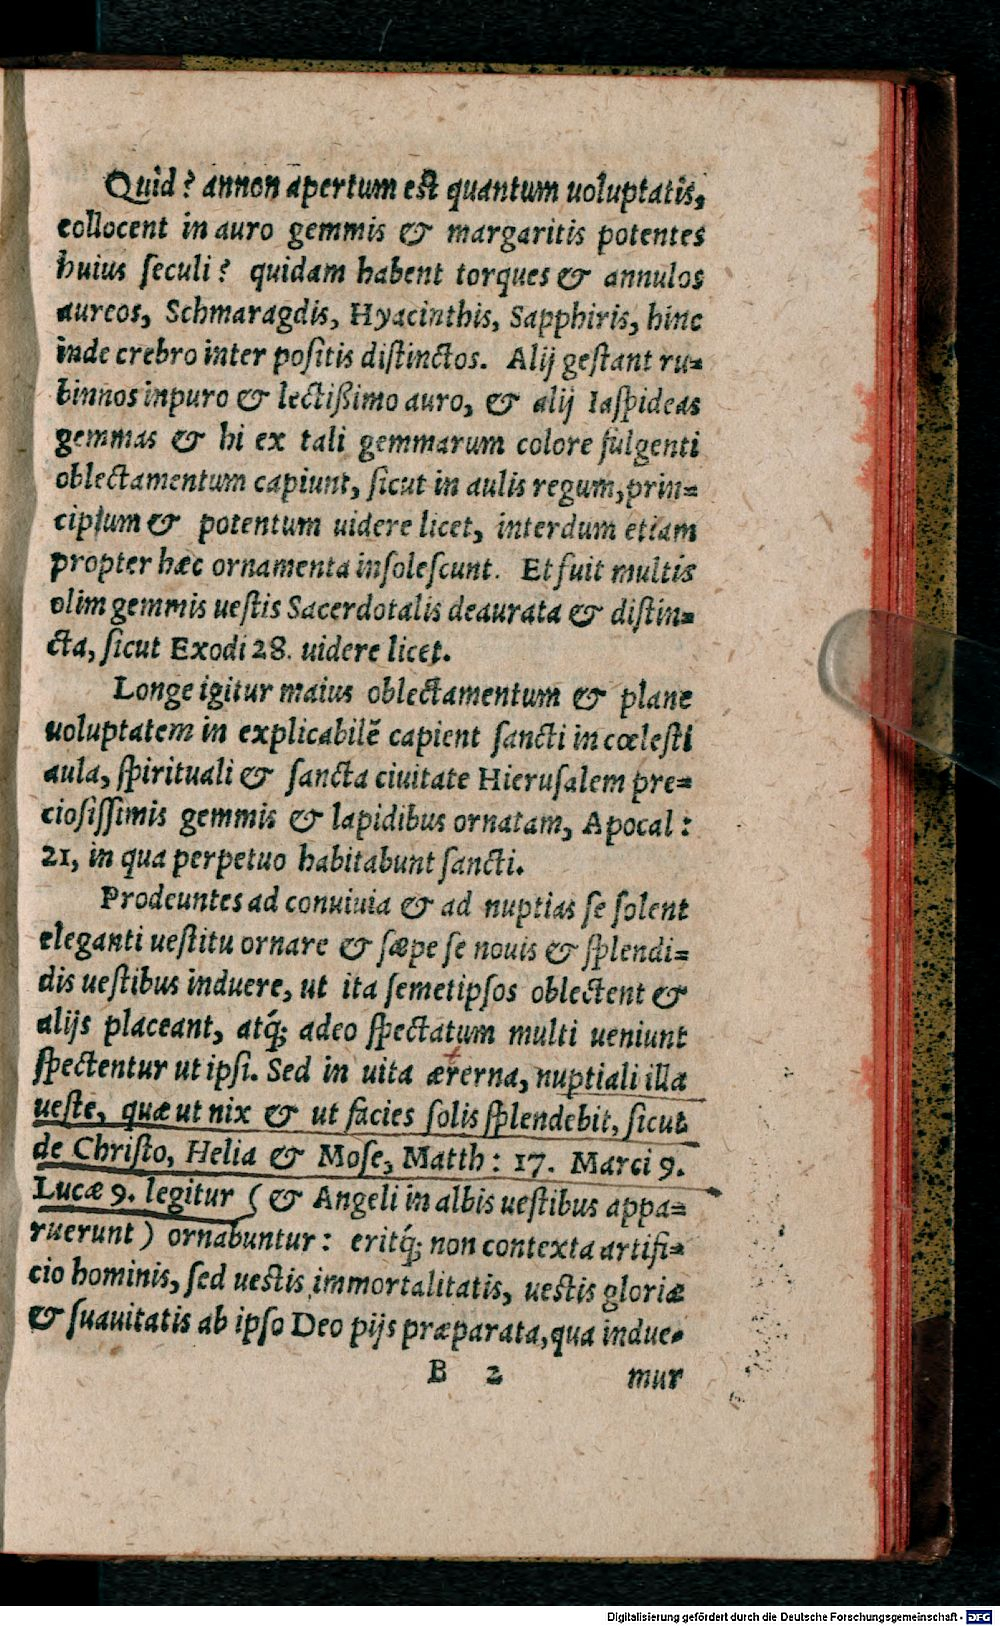 Quid? annon apertum est quantum uoluptatis,
collocent in auro gemmis & margaritis potentes
huius seculi? quidam habent torques & annulos
aureos, Schmaragdis, Hyacinthis, Sapphiris, hinc
inde crebro inter positis distinctos. Alij gestant ru-
binnos in puro & lectißimo auro, & alij Iaspideas
gemmas & hi ex tali gemmarum colore fulgenti
oblectamentum capiunt, sicut in aulis regum, prin-
cipium & potentum uidere licet, interdum etiam
propter hæc ornamenta insolescunt. Et fuit multis
olim gemmis uestis Sacerdotalis deaurata & distin-
cta, sicut Exodi 28. uidere licet.
Longe igitur maius oblectamentum & plane
uoluptatem in explicabilẽ capient sancti in cœlesti
aula, spirituali & sancta ciuitate Hierusalem pre-
ciosissimis gemmis & lapidibus ornatam, Apocal:
21, in qua perpetuo habitabunt sancti.
Prodeuntes ad conuiuia & ad nuptias se solent
eleganti uestitu ornare & sæpe se nouis & splendi-
dis uestibus induere, ut ita semetipsos oblectent &
alijs placeant, atq́; adeo spectatum multi ueniunt
spectentur ut ipsi. Sed in uita ærerna, nuptiali illa
t
ueste, quæ ut nix & ut facies solis splendebit, sicut
de Christo, Helia & Mose, Matth: 17. Marci 9.
Lucæ 9. legitur (& Angeli in albis uestibus appa-
ruerunt) ornabuntur: eritq́; non contexta artifi-
cio hominis, sed uestis immortalitatis, uestis gloriæ
& suauitatis ab ipso Deo pijs præparata, qua indue-
B 2 mur
Digitalisierung gefördert durch die Deutsche Forschungsgemeinschaft - DFG